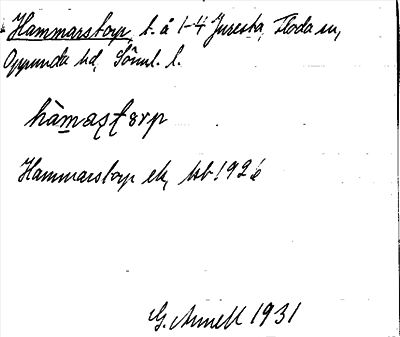 Hammarstorp t. å 1-4 Juresta, Floda sn,
Oppunda hd, Söml. l.
hàmasṭɔrp
Hammarstorp ek, kbl 1926
G. Annell 1931